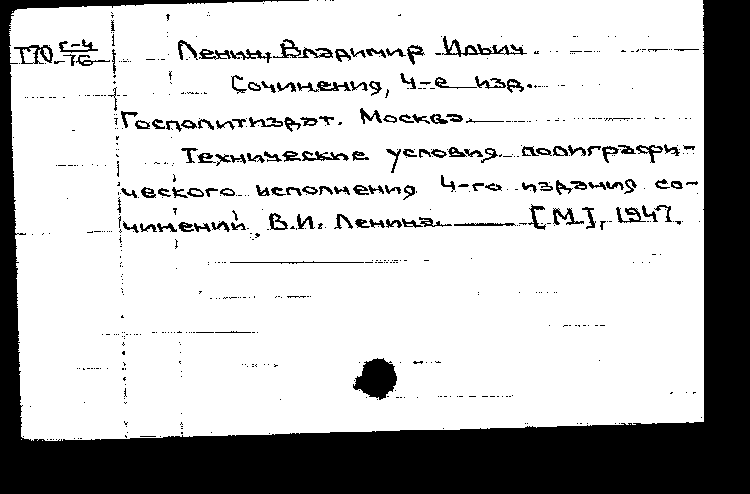 Т70 г-4/76
Ленин, Владимир Ильич.
Сочинения, 4-е изд.
Госполитиздат. Москва.
Технические условия полиграфи-
ческого исполнения 4-го издания со-
чинений, В.И. Ленина. [М.], 1947.